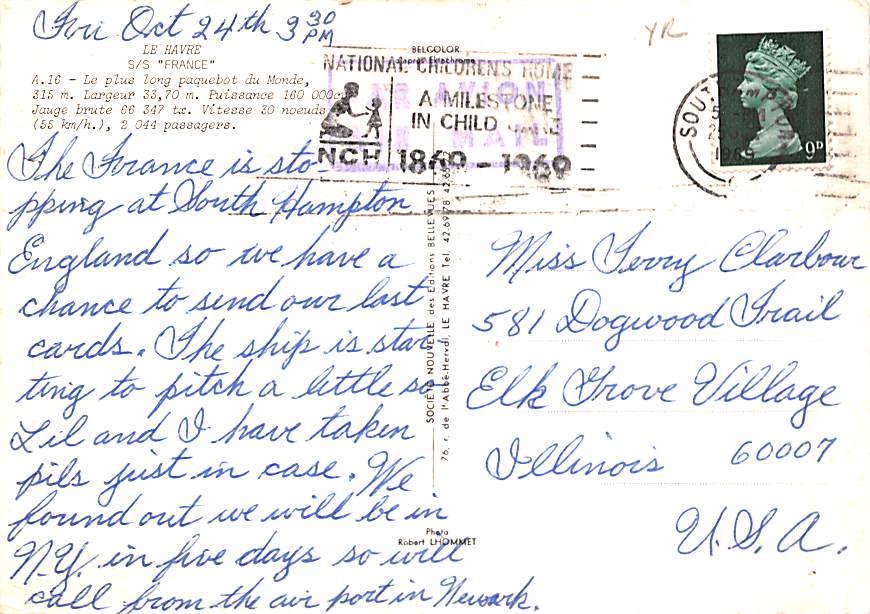 Fri Oct 24th 3 30 PM
LE HAVRE
S/S "FRANCE"
A.16 - Le plus long paquebot du Monde,
315 m. Largeur 33,70 m. Puissance 160 000cv
Jauge brute 66 347 tx. Vitesse 30 noeuds
(55 km/h.), 2 044 passagers.
The France is sto-
pping at South Hampton
England so we have a
chance to send our last
cards. The ship is star
ting to pitch a little so
Lil and I have taken
pils just in case. We
found out we will be in
N.Y. in five days so will
call from the air port in Newark.
BELCOLOR
NATIONAL CHILDREN'S HOME
A MILESTONE
IN CHILD
NCH 1869 - 1969
PAR AVION
AIR MAIL
YR
SOUT
1969
9D
SOCIÉTÉ NOUVELLE des Editions BELLEVUES
76, r. de l'Abbé-Herval, LE HAVRE Tel. 42.69.78
Photo
Robert LHOMMET
Miss Terry Clarbour
581 Dogwood Trail
Elk Grove Village
Illinois 60007
U.S.A.